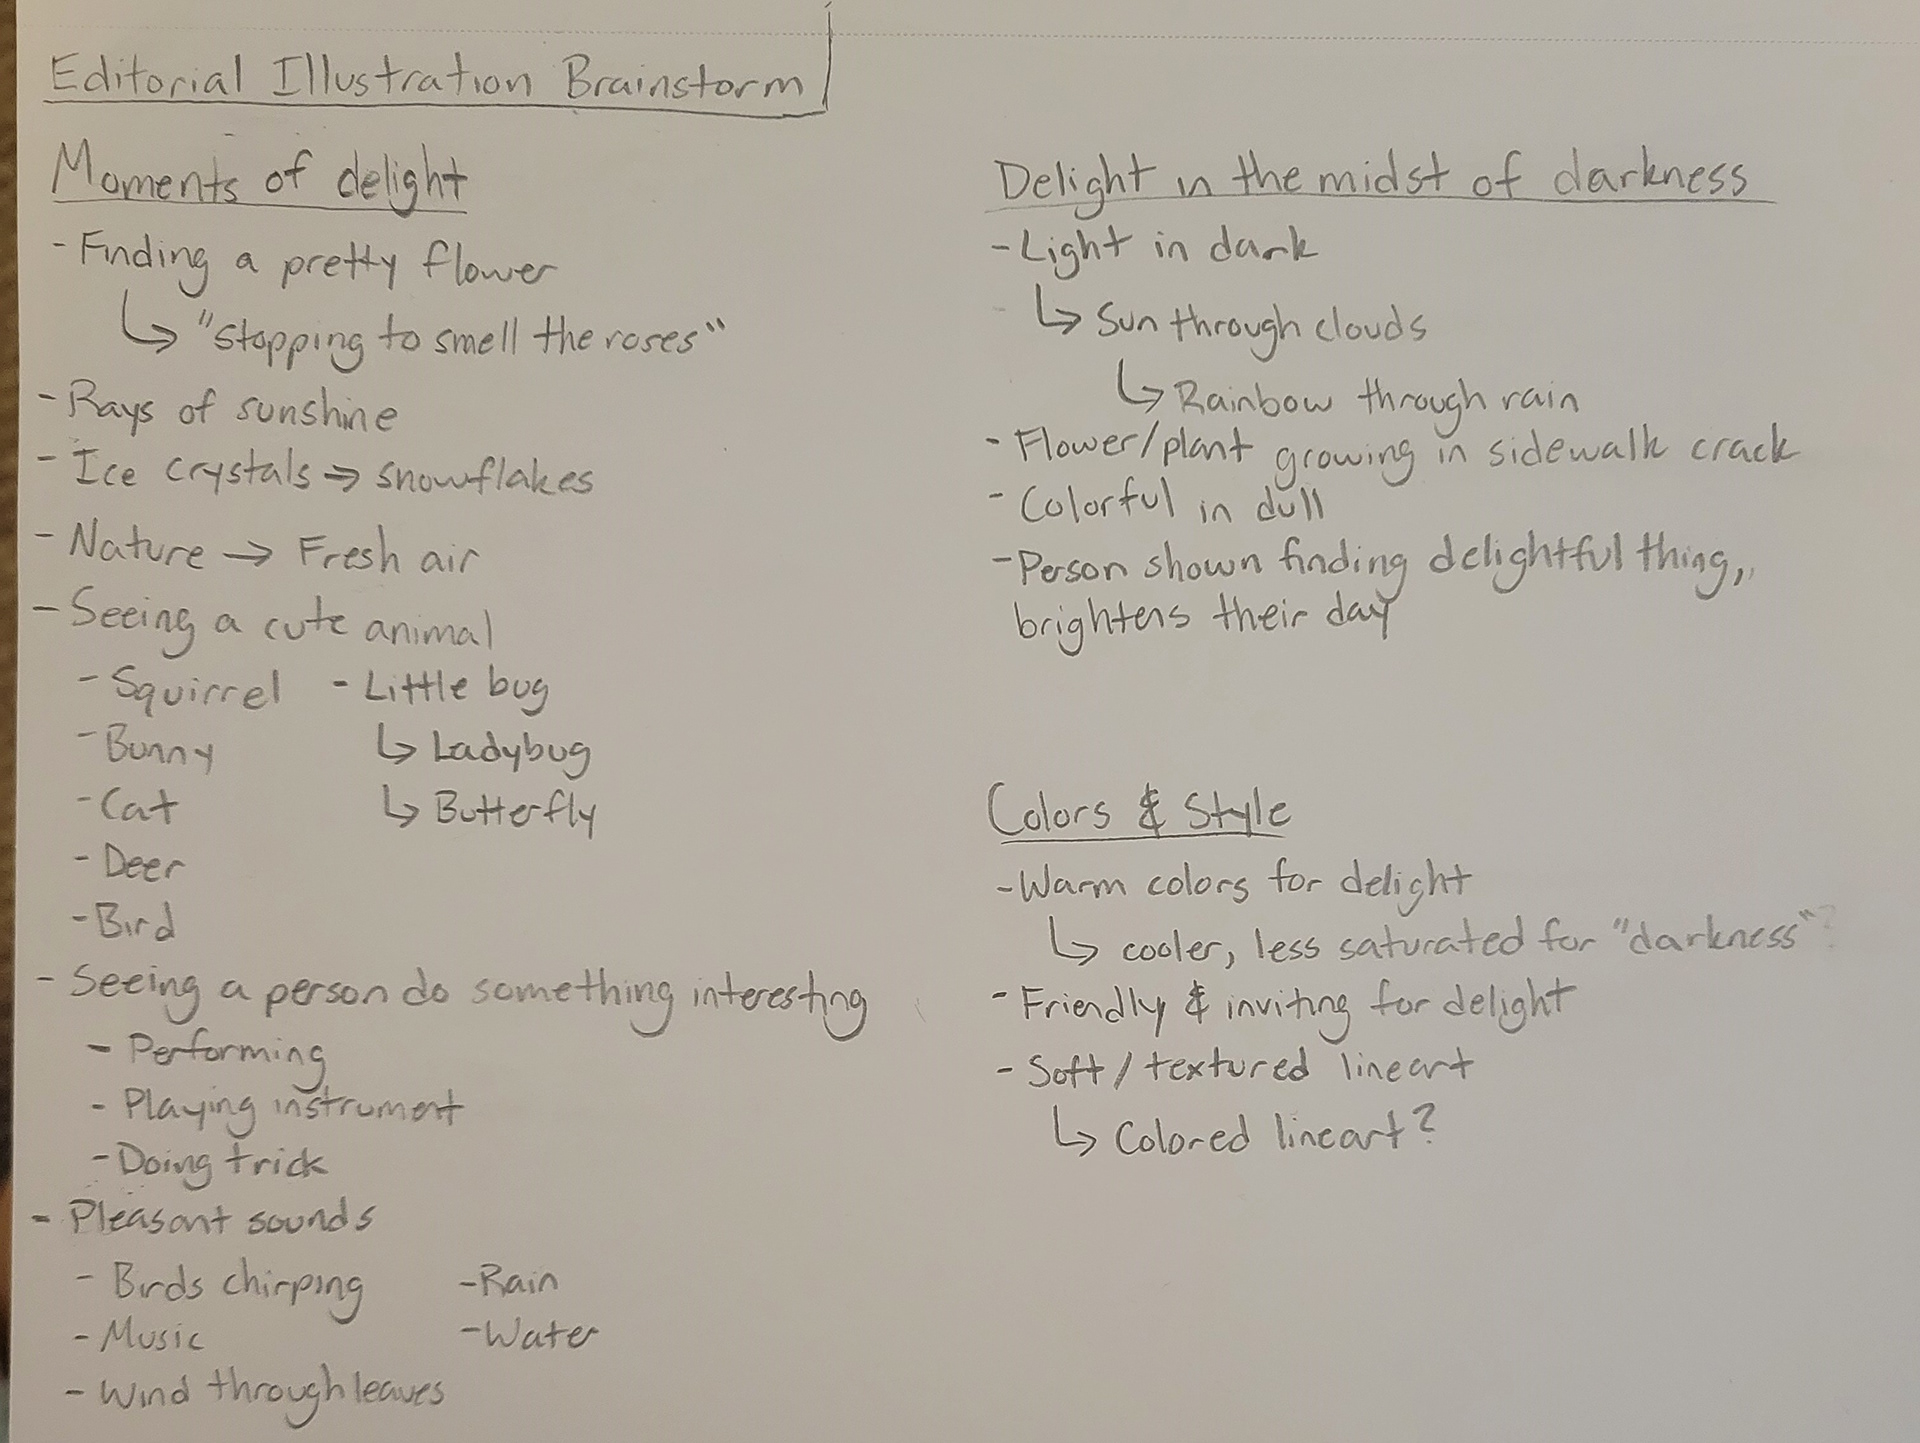 Editorial Illustration Brainstorm
Moments of delight
- Finding a pretty flower
↳ "stopping to smell the roses"
- Rays of sunshine
- Ice crystals → snowflakes
- Nature → Fresh air
- Seeing a cute animal
- Squirrel - Little bug
- Bunny ↳ Ladybug
- Cat ↳ Butterfly
- Deer
- Bird
- Seeing a person do something interesting
- Performing
- Playing instrument
- Doing trick
- Pleasant sounds
- Birds chirping - Rain
- Music - Water
- Wind through leaves
Delight in the midst of darkness
- Light in dark
↳ Sun through clouds
↳ Rainbow through rain
- Flower/plant growing in sidewalk crack
- Colorful in dull
- Person shown finding delightful thing,
brightens their day
Colors & Style
- Warm colors for delight
↳ cooler, less saturated for "darkness"?
- Friendly & inviting for delight
- Soft/textured lineart
↳ Colored lineart?